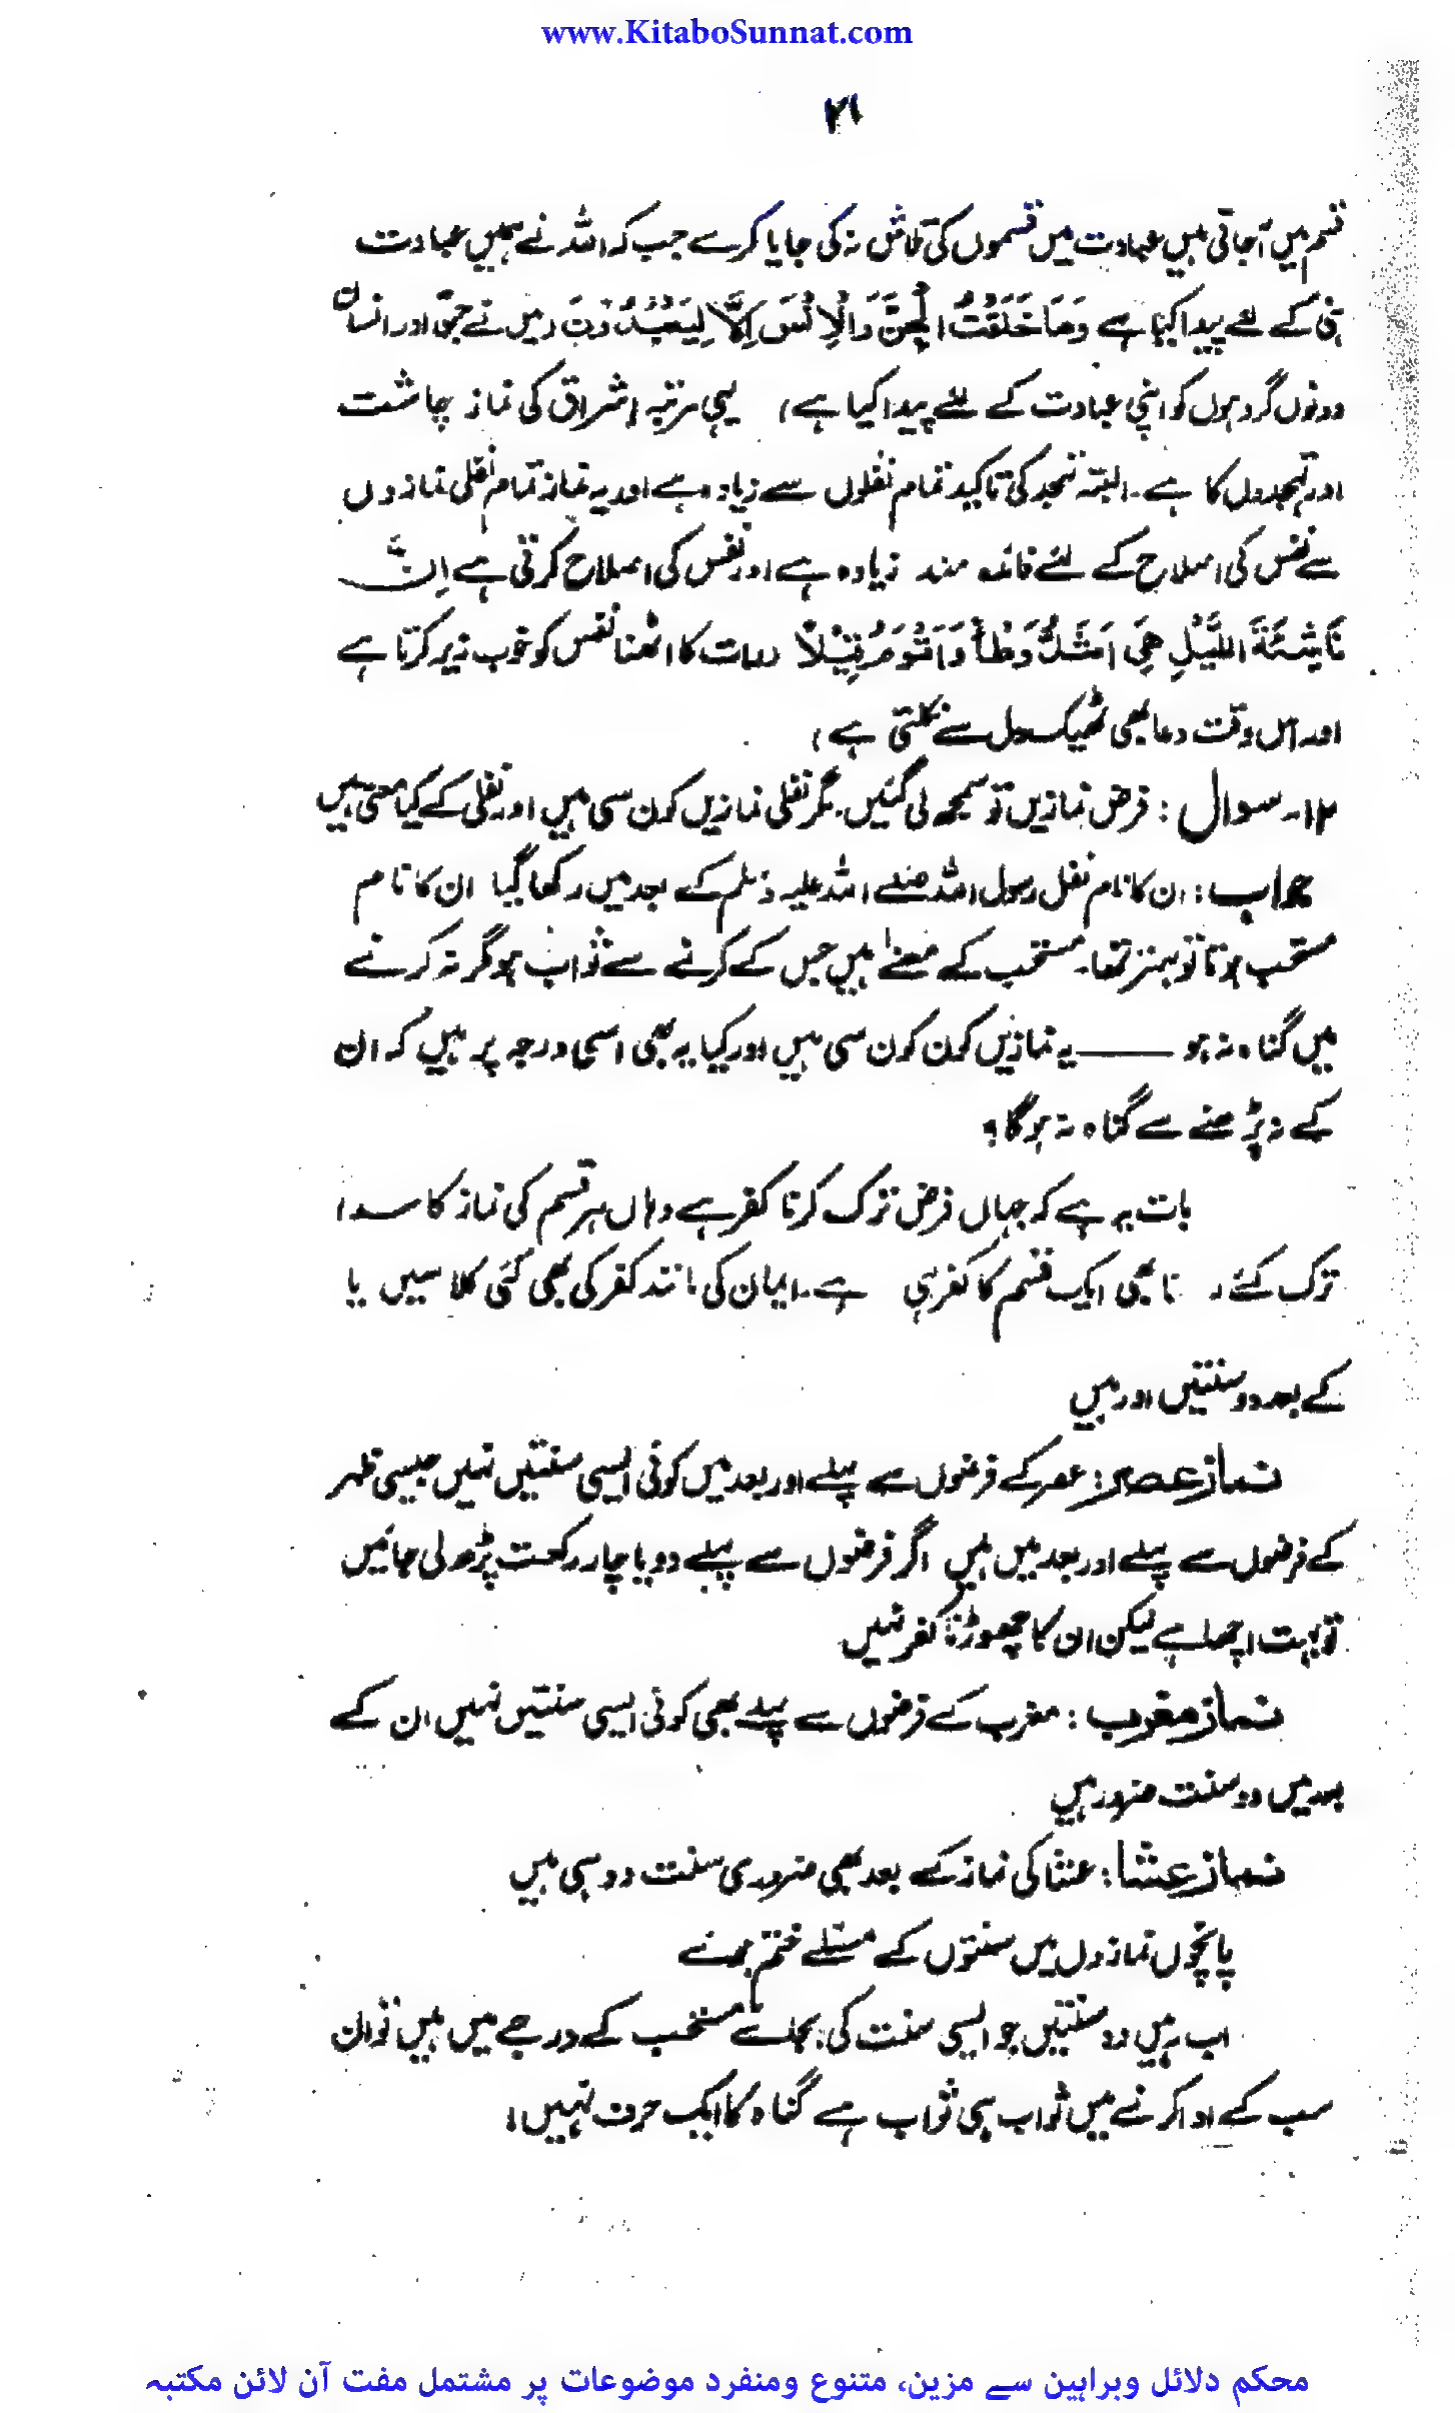 www.KitaboSunnat.com
۲۱
قسم میں آجاتی ہیں عبادت میں قسموں کی تلاش نہ کی جایا کرے جب کہ اللہ نے ہمیں عبادت
ہی کے لئے پیدا کیا ہے وَمَا خَلَقْتُ الْجِنَّ وَالْاِنْسَ اِلَّا لِيَعْبُدُوْنَ (میں نے جن اور انسان
دونوں گروہوں کو اپنی عبادت کے لئے پیدا کیا ہے) یہی مرتبہ اشراق کی نماز چاشت
اور تہجدوں کا ہے۔ البتہ تہجد کی تاکید تمام نفلوں سے زیادہ ہے اور یہ نماز تمام نفلی نمازوں
سے نفس کی اصلاح کے لئے فائدہ مند زیادہ ہے اور نفس کی اصلاح کرتی ہے اِنَّ
نَاشِئَةَ اللَّيْلِ هِيَ اَشَدُّ وَطْأً وَاَقْوَمُ قِيْلًا (رات کا اٹھنا نفس کو خوب زیر کرتا ہے
اور اس وقت دعا بھی ٹھیک دل سے نکلتی ہے)
۱۲۔ سوال : فرض نمازیں تو سمجھ لی گئیں۔ مگر نفلی نمازیں کون سی ہیں اور نفلی کے کیا معنی ہیں
جواب : ان کا نام نفل رسول اللہ صلے اللہ علیہ وسلم کے بعد میں رکھا گیا ان کا نام
مستحب ہوتا تو بہتر تھا۔ مستحب کے معنے ہیں جس کے کرنے سے ثواب ہو گر نہ کرنے
میں گناہ نہ ہو ـــــــ یہ نمازیں کون کون سی ہیں اور کیا یہ بھی اسی درجہ پر ہیں کہ ان
کے نہ پڑھنے سے گناہ نہ ہوگا؟
بات یہ ہے کہ جہاں فرض ترک کرنا کفر ہے وہاں ہر قسم کی نماز کا سدا
ترک کئے ر نا بھی ایک قسم کا کفر ہی ہے۔ ایمان کی مانند کفر کی بھی کئی کلاسیں یا
کے بعد دو سنتیں اور ہیں
نماز عصر : عصر کے فرضوں سے پہلے اور بعد میں کوئی ایسی سنتیں نہیں جیسی ظہر
کے فرضوں سے پہلے اور بعد میں ہیں اگر فرضوں سے پہلے دو یا چار رکعت پڑھ لی جائیں
تو بہت اچھا ہے لیکن ان کا چھوڑنا کفر نہیں
نماز مغرب : مغرب کے فرضوں سے پہلے بھی کوئی ایسی سنتیں نہیں ان کے
بعد میں دو سنت ضرور ہیں
نماز عشا : عشا کی نماز کے بعد بھی ضروری سنت دو ہی ہیں
پانچوں نمازوں میں سنتوں کے مسئلے ختم ہوئے
اب رہیں وہ سنتیں جو ایسی سنت کی بجائے مستحب کے درجے میں ہیں تو ان
سب کے ادا کرنے میں ثواب ہی ثواب ہے گناہ کا ایک حرف نہیں!
محکم دلائل وبراہین سے مزین، متنوع ومنفرد موضوعات پر مشتمل مفت آن لائن مکتبہ